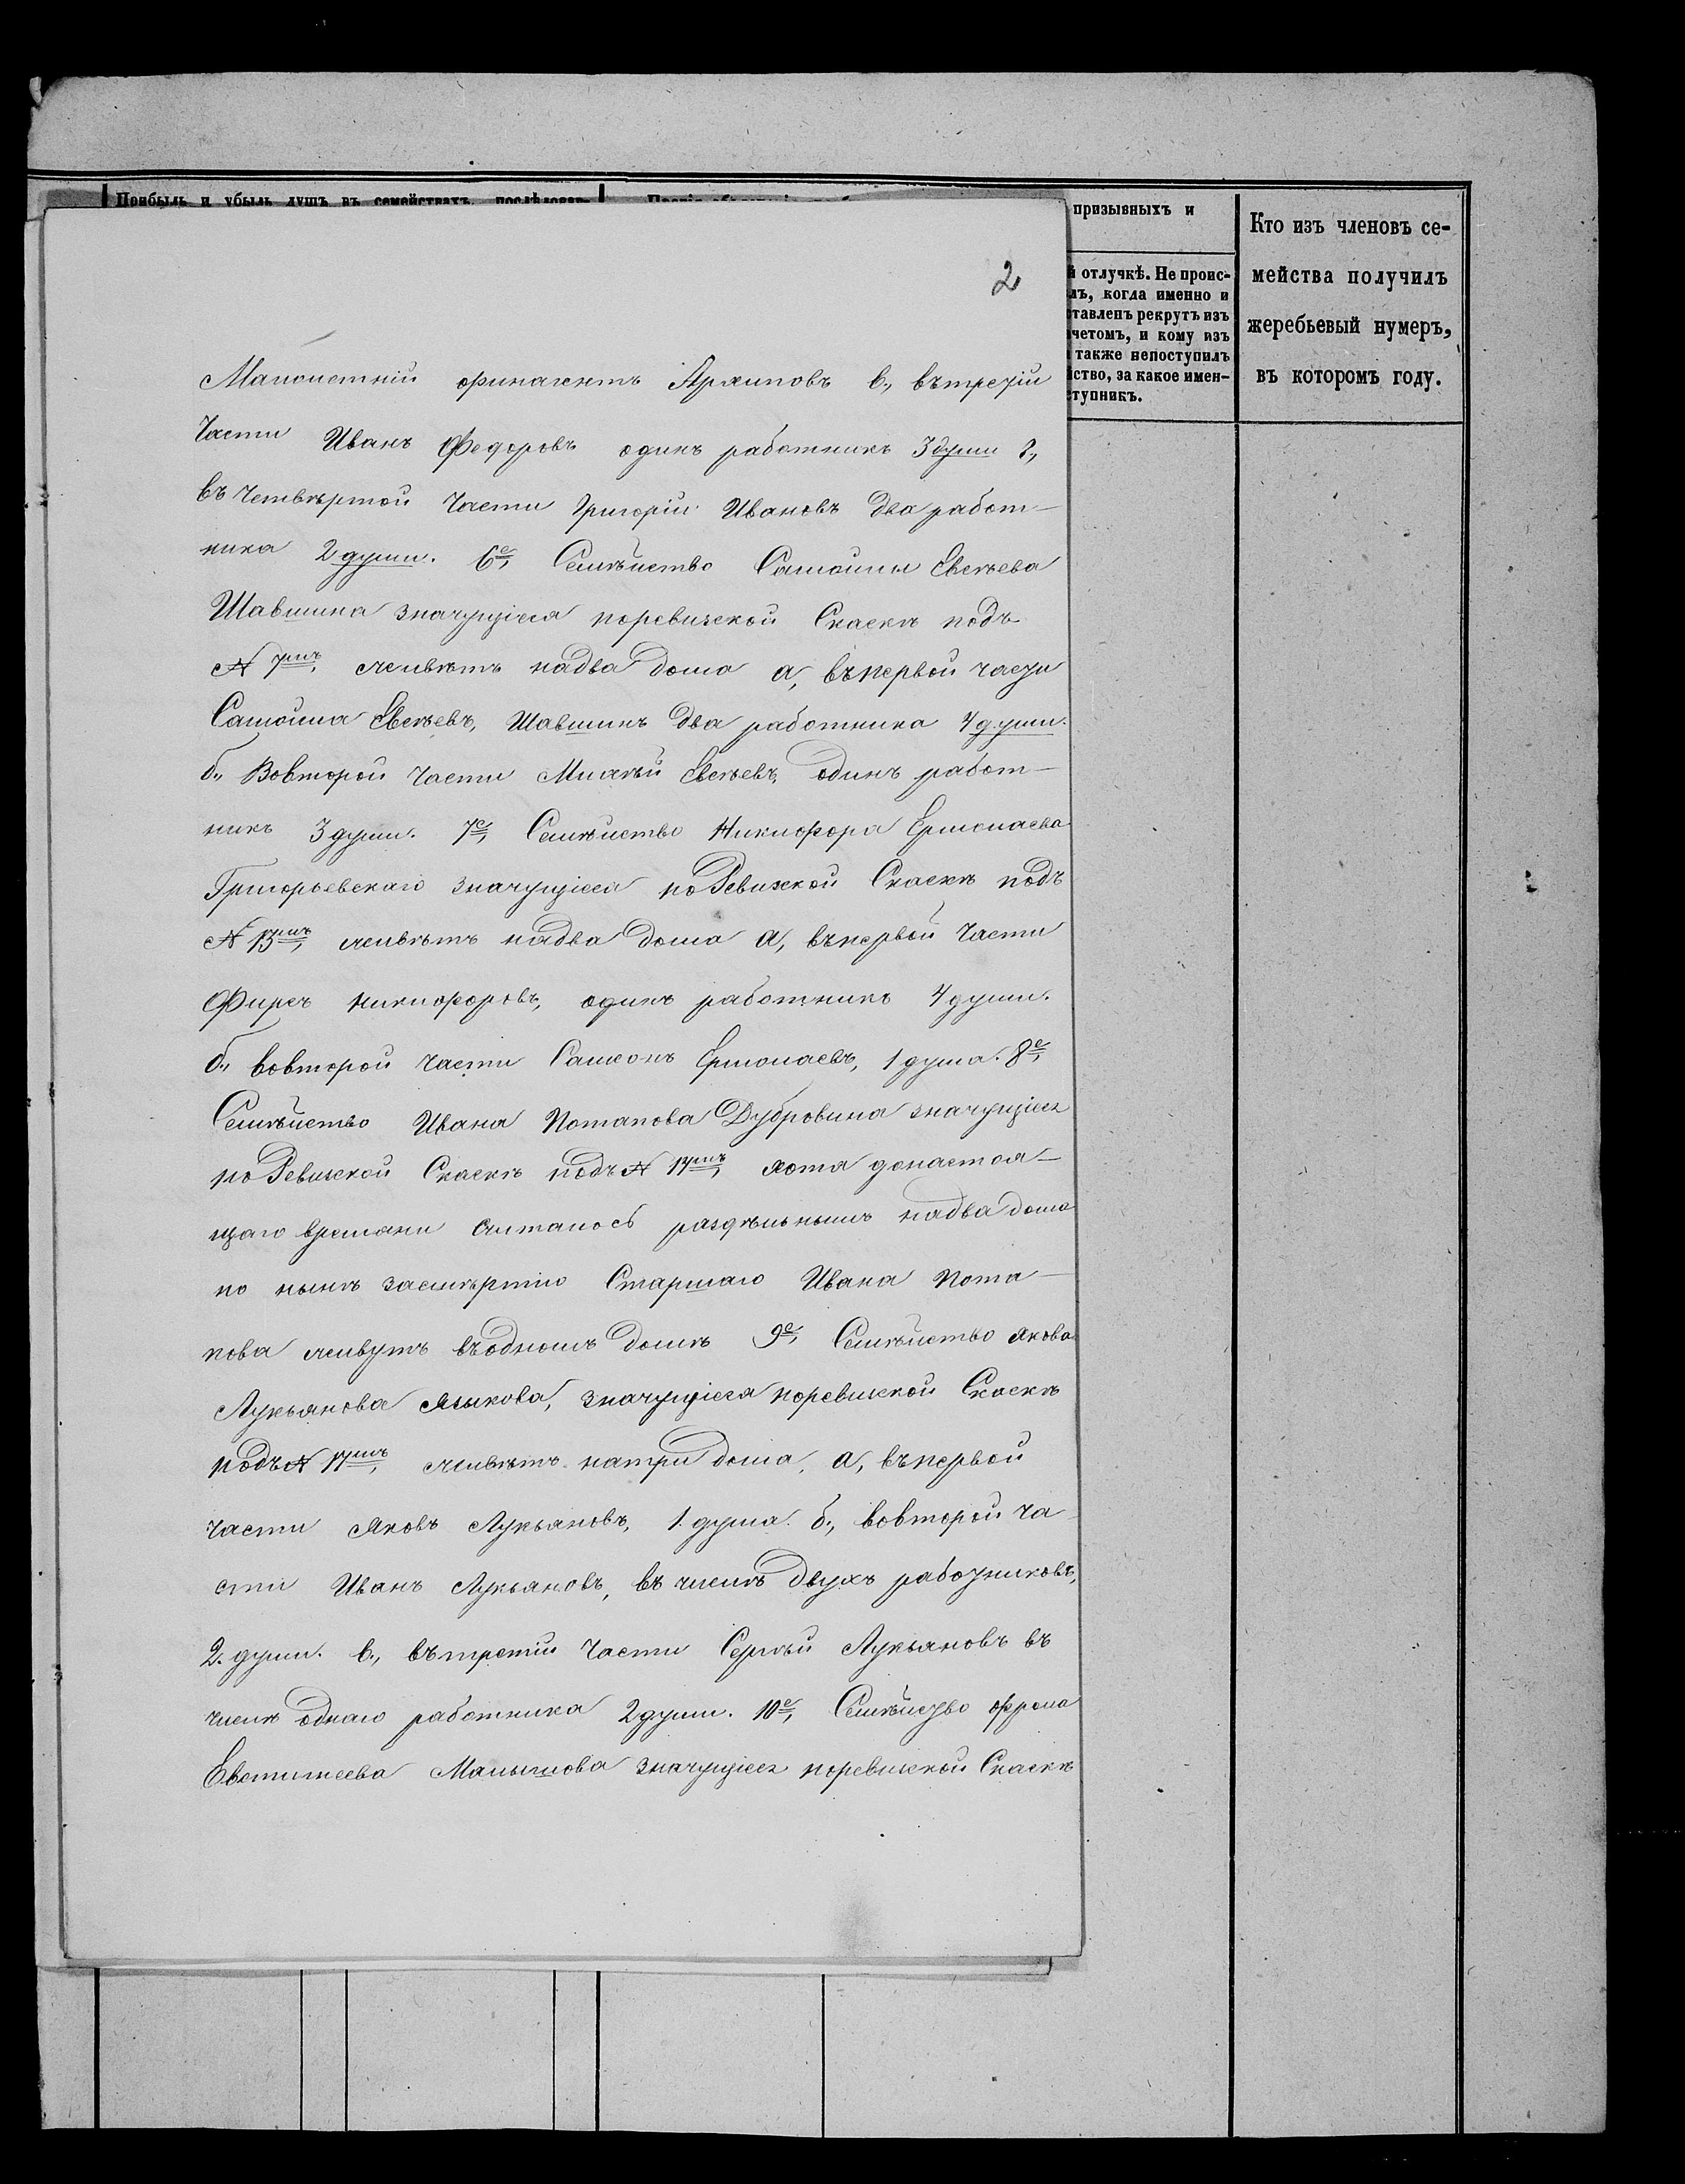 Прибыль и убыль душъ въ семействахъ, послѣдовав-
призывныхъ и
отлучкѣ. Не проис-
когда именно и
рекрутъ изъ
и кому изъ
также непоступилъ
за какое имен-
Кто изъ членовъ се-
мейства получилъ
жеребьевый нумеръ,
въ которомъ году.
2
Малолетній финагентъ Архиповъ в., вътретіи
Части Иванъ Федоровъ одинъ работникъ 3 души г.,
въ Четвѣртой Части Григорій Ивановъ два работ-
ника 2 души. 6е, Семѣйство Самойлы Евсѣева
Шавшина значущіеся поревизской Скаскѣ подъ
№ 7мъ, живѣтъ надва дома а, въпервой части
Самойла Евсѣевъ, Шавшинъ два работника 4 души.
б., Вовторой Части Михѣй Евсѣевъ, одинъ работ-
никъ 3 души. 7е, Семѣйство Никифора Ермолаева
Григорьевскаго значущіеся по Ревизской Скаскѣ подъ
№ 13мъ, живѣтъ надва дома а, въпервой Части
Фирсъ Никифоровъ, одинъ работникъ 4 души.
б., вовторой части Самсонъ Ермолаевъ, 1 душа. 8е,
Семѣйство Ивана Потапова Дубровина значущіеся
по Ревизской Скаскѣ подъ № 14мъ, хотя донастоя-
щаго времяни считалось раздѣльнымъ надва дома
но нынѣ засмѣртію Старшаго Ивана Пота-
пова живутъ въодномъ домѣ 9е, Семѣйство Якова
Лукьянова Языкова, значущіеся поревизской Скаскѣ
подъ № 17мъ, живѣтъ натри дома, а, въпервой
части Яковъ Лукьяновъ, 1 душа. б., вовторой ча-
сти Иванъ Лукьяновъ, въ числѣ двухъ работниковъ,
2. души. в., вътретій Части Сергѣй Лукьяновъ въ
числѣ однаго работника 2 души. 10е, Семѣйство Фрола
Евстигнеева Малышова значущіеся поревизской Скаскѣ